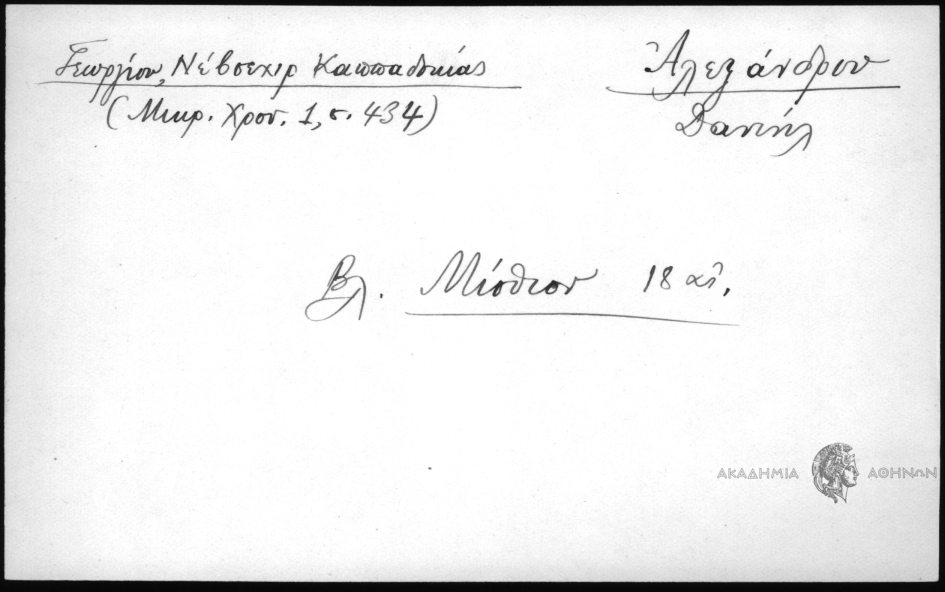 Γεωργίου, Νέβσεχιρ Καππαδοκίας
(Μικρ. Χρον. 1, σ. 434)
Ἀλεξάνδρου
Δανιήλ
Βλ. Μίσθιον 18 αἰ.
ΑΚΑΔΗΜΙΑ ΑΘΗΝΩΝ